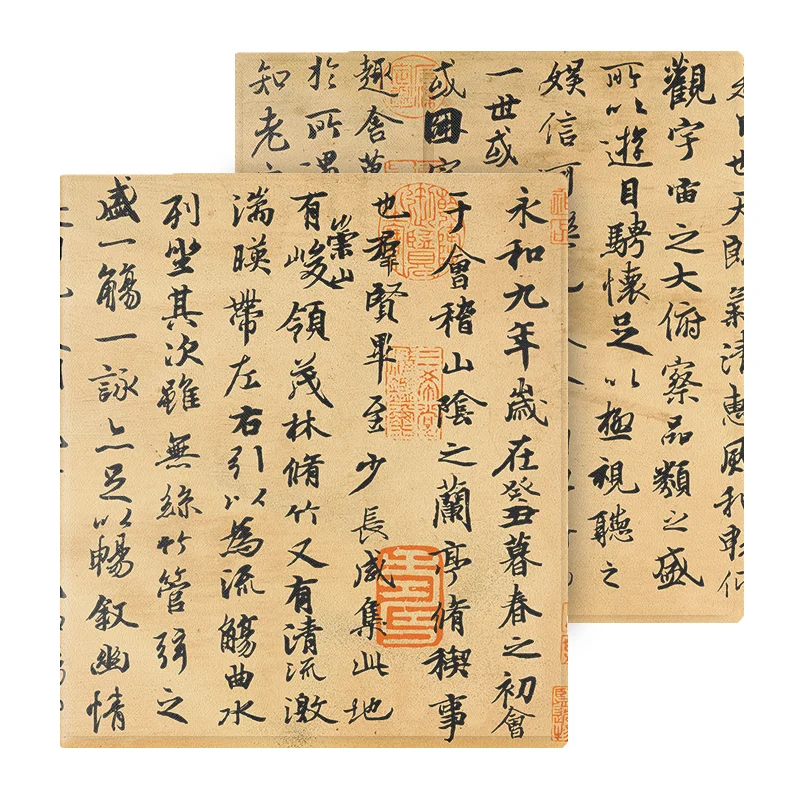 永和九年歲在癸丑暮春之初會
于會稽山陰之蘭亭脩稧事
也羣賢畢至少長咸集此地
有崇山峻領茂林脩竹又有清流激
湍暎帶左右引以為流觴曲水
列坐其次雖無絲竹管弦之
盛一觴一詠亦足以暢敘幽情
也天朗氣清惠風和暢仰
觀宇宙之大俯察品類之盛
所以遊目騁懷足以極視聽之
娛信可
一世或
或因寄
趣舍萬
於所遇
知老